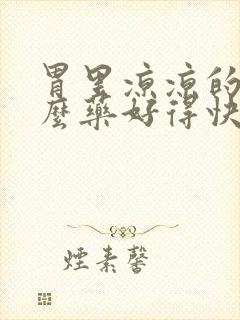 胃里凉凉的
麼藥好得快
煙素馨